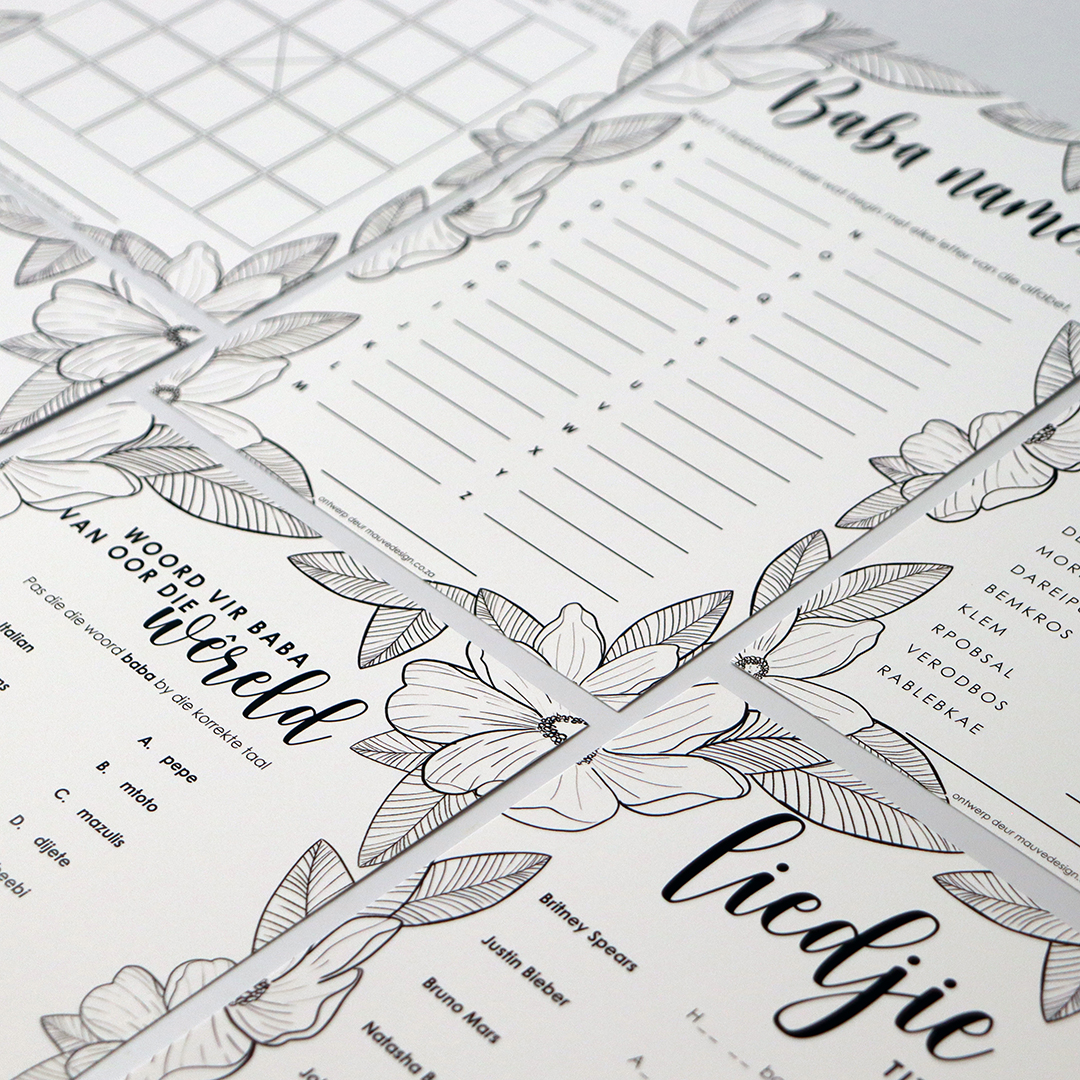 Baba name
wat begin met elke letter van die alfabet.
A
B
C
D
E
F
G
H
I
J
K
L
M
N
O
P
Q
R
S
T
U
V
W
X
Y
Z
ontwerp deur mauvedesign.co.za
WOORD VIR BABA
VAN OOR DIE
wêreld
Pas die die woord baba by die korrekte taal
Italian
A. pepe
B. mtoto
C. mazulis
D. dijete
MOR
DAREIP
BEMKROS
KLEM
RPOBSAL
VERODBOS
RABLEBKAE
ontwerp deur mauvedesign.
liedjie
Britney Spears
Justin Bieber
Bruno Mars
Natasha B
H_ _ _ _ ba
A_